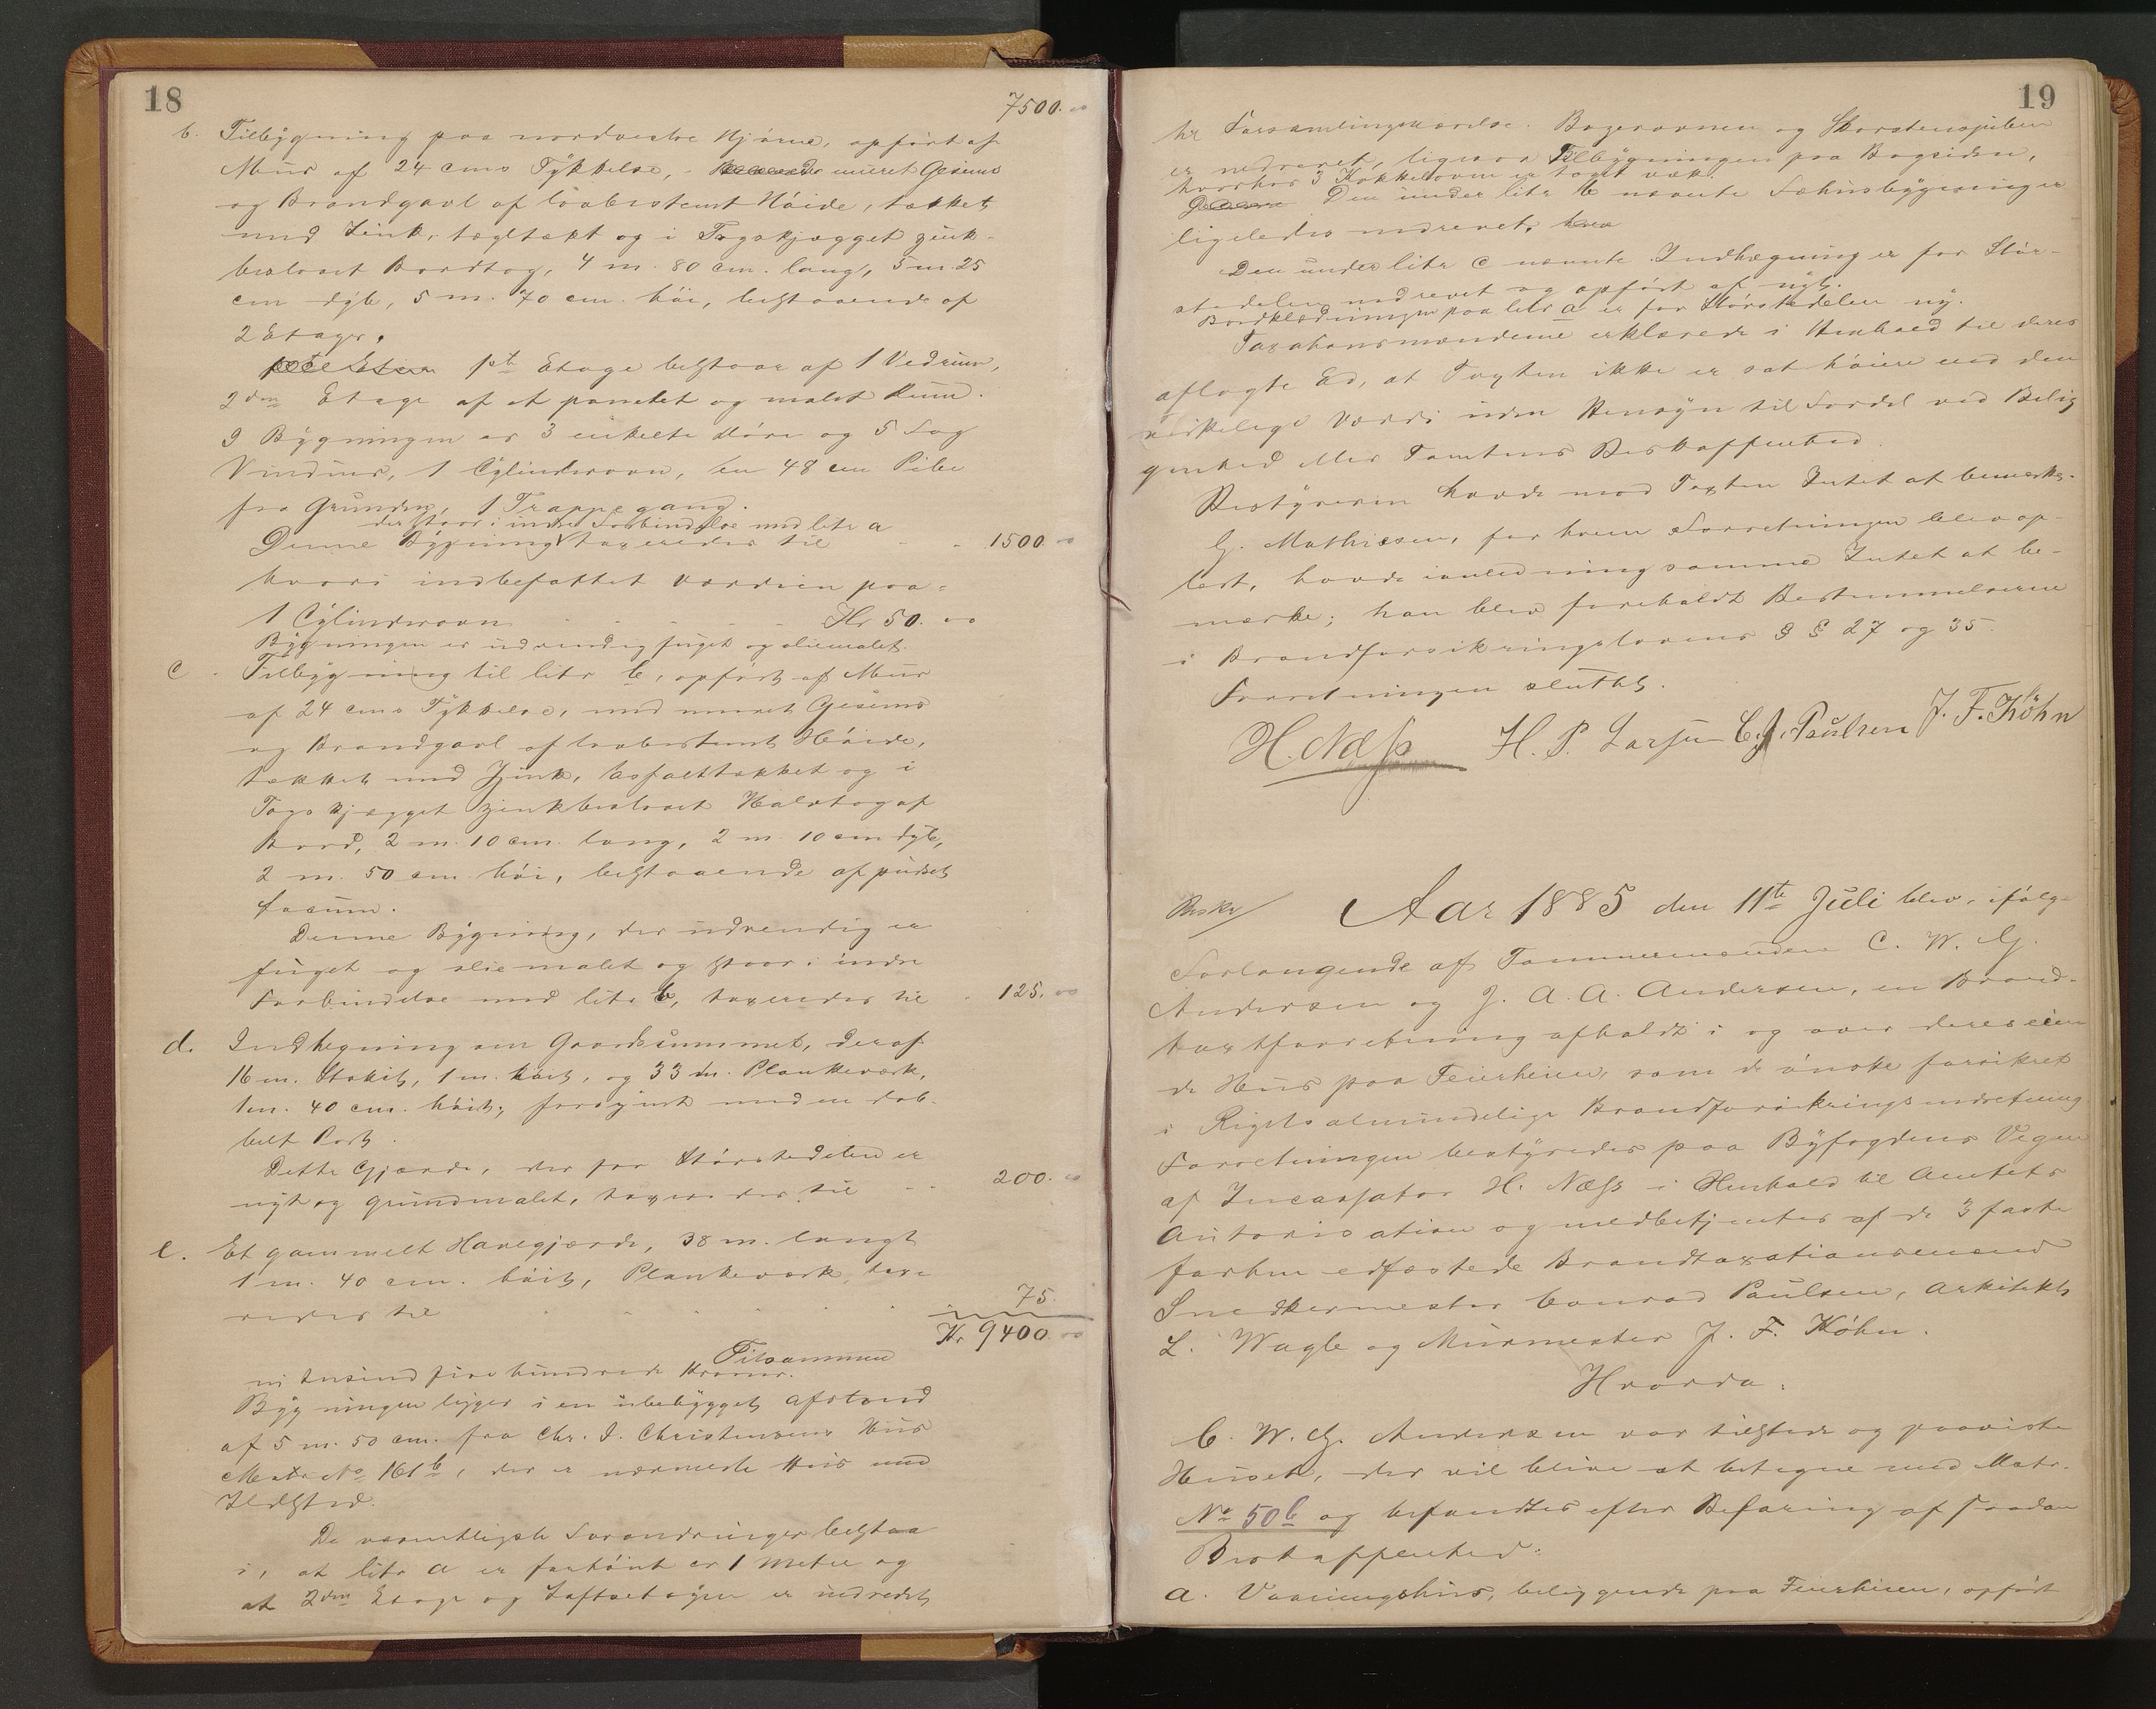 18
7500.00
b. Tilbygning paa nordvestre Hjørne, opført af
Muur af 24 cms Tykkelse, muret Gesims
og Brandgavl af lovbestemt Høide, tækket
med Zink, tægltækt og i Tagskjægget zink-
beslaaet Bordtag, 4 m. 80 cm. lang, 5 m 25
cm dyb, 5 m. 70 cm. høi, bestaaende af
2 Etager.
1ste Etage bestaar af 1 Vedrum,
2den Etage af et panelet og malet Rum.
I Bygningen er 3 enkelte Døre og 5 Fag
Vinduer, 1 Cylinderovn, en 48 cm Pibe
fra Grunden, 1 Trappegang.
der staar i indre Forbindelse med litr a
Denne Bygning taxeredes til - - 1500.00
hvori indbefattet Værdien paa:
1 Cylinderovn - - - Kr 50.00
Bygningen er udvendig fuget og oliemalet.
c. Tilbygning til litr b, opført af Muur
af 24 cms Tykkelse, med muret Gesims
og Brandgavl af lovbestemt Høide,
tækket med Zink, asfalttækket og i
Tagskjægget zinkbeslaaet Halvtag af
Bord, 2 m. 10 cm. lang, 2 m 10 cm dyb,
2 m. 50 cm. høi, bestaaende af pudset
Locum.
Denne Bygning, der udvendig er
fuget og oliemalet og staar i indre
Forbindelse med litr b, taxeredes til - 125.00
d. Indhegning om Gaardsrummet, deraf
16 m. Stakit, 1 m. høit, og 33 m. Plankeværk,
1 m. 40 cm. høit; forsynet med en dob-
belt Port.
Dette Gjærde, der for Størstedelen er
nyt og grundmalet, taxeredes til - - 200.00
e. Et gammelt Havegjærde, 38 m. langt
1 m. 40 cm. høit, Plankeværk, taxe
redes til - - - 75.
Tilsammen Kr 9400.00
ni tusind fire hundrede Kroner.
Bygningen ligger i en ubebygget Afstand
af 5 m. 50 cm. fra Chr. I. Christensens Huus
Matr No 161b, der er nærmeste Huus med
Ildsted.
De væsentligste Forandringer bestaa
i, at litr a er forhøiet en 1 Meter og
at 2den Etage og Loftsetagen er indredet
19
til Forsamlingsværelse. Bagerovnen og Skorstenspiben
er nedrevet, ligesaa Tilbygningen paa Bagsiden,
hvorhos 3 Kakkelovne er taget væk.
Den under litr b nævnte Fæhusbygning er
ligeledes nedrevet.
Den under litr c nævnte Indhegning er for Stør-
stedelen nedrevet og opført af nyt.
Bordklædningen paa litr a er for Størstedelen ny.
Taxationsmændene erklærede i Henhold til deres
aflagte Ed, at Taxten ikke er sat høiere end den
virkelige Værdi uden Hensyn til Fordel ved Belig
genhed eller Tomtens Beskaffenhed.
Bestyreren havde mod Taxten Intet at bemærke.
G. Mathiesen, for hvem Forretningen blev op-
læst, havde i anledning samme Intet at be-
mærke; han blev foreholdt Bestemmelserne
i Brandforsikringslovens §§ 27 og 35.
Forretningen sluttet.
H. Næss H. P. Larsen C. J. Paulsen J. F. Köhn
Beskr
Aar 1885 den 11te Juli blev, ifølge
Forlangende af Tømmermændene C. W. G.
Andersen og J. A. A. Andersen, en Brand-
taxtforretning afholdt i og over deres eien
de Huus paa Feierheien, som de ønske forsikret
i Rigets almindelige Brandforsikringsindretning
Forretningen bestyredes paa Byfogdens Vegne
af Incassator H. Næss i Henhold til Amtets
Autorisation og medbetjentes af de 3 faste
forhen edfæstede Brandtaxationsmænd
Snedkermester Conrad Paulsen, Arkitekt
L. Wagle og Murmester J. F. Köhn.
Hvorda:
C. W. G. Andersen var tilstede og paaviste
Huset, der vil blive at betegne med Matr.
No 50b og befandtes efter Befaring af saadan
Beskaffenhed:
a. Vaaningshus, beliggende paa Feierheien, opført